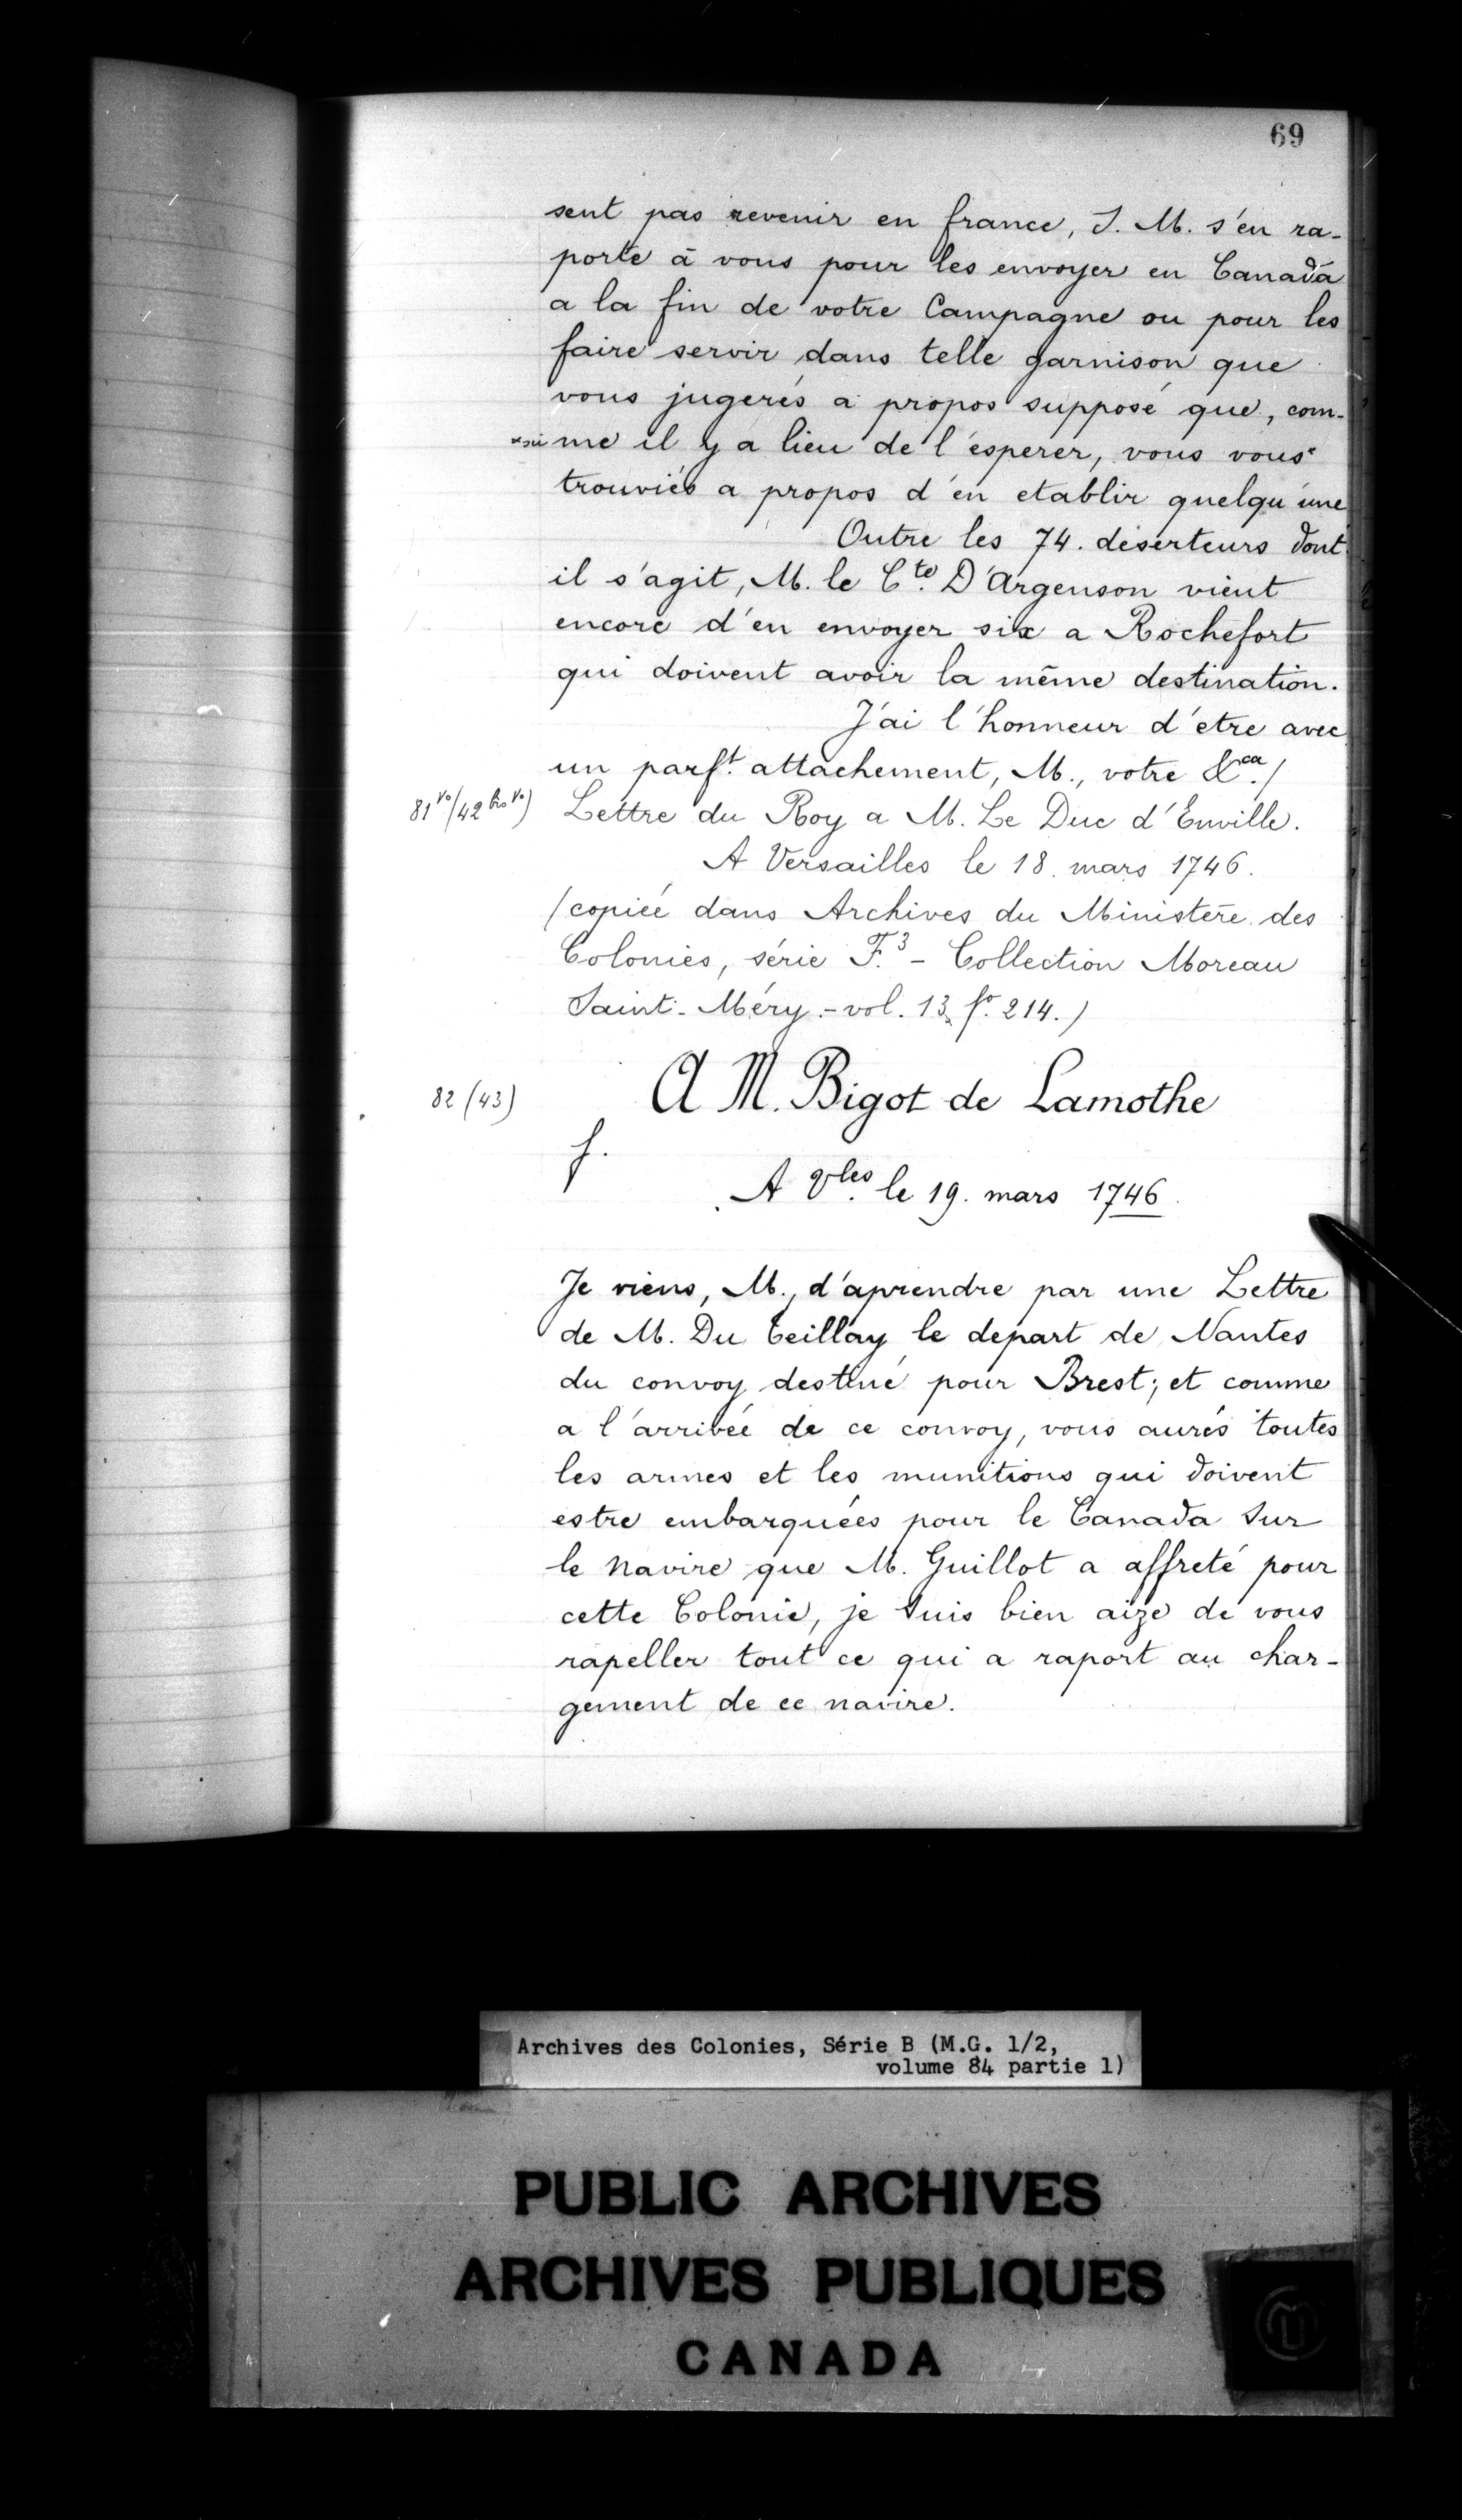 69
sent pas revenir en france, S. M. s'en ra-
porte à vous pour les envoyer en Canada
a la fin de votre Campagne ou pour les
faire servir dans telle garnison que
vous jugerés a propos supposé que, com-
me il y a lieu de l'esperer, vous vous*
trouviés a propos d'en etablir quelqu'une
Outre les 74. deserteurs dont
il s'agit, M. le Cte. D'Argenson vient
encore d'en envoyer six a Rochefort
qui doivent avoir la même destination.
J'ai l'honneur d'etre avec
un parft. attachement, M., votre &ca./
81vo/42bis vo) Lettre du Roy a M. Le Duc d'Enville.
A Versailles le 18. mars 1746.
(copiée dans Archives du Ministère des
Colonies, série F.3 - Collection Moreau
Saint-Méry.-vol. 13, fo. 214.)
82 (43) A M. Bigot de Lamothe
f.
A Vles. le 19. mars 1746.
Je viens, M., d'aprendre par une Lettre
de M. Du Teillay le depart de Nantes
du convoy destiné pour Brest; et comme
a l'arrivée de ce convoy, vous aurés toutes
les armes et les munitions qui doivent
estre embarquées pour le Canada sur
le navire que M. Guillot a affreté pour
cette Colonie, je suis bien aize de vous
rapeller tout ce qui a raport au char-
gement de ce navire.
Archives des Colonies, Série B (M.G. 1/2,
volume 84 partie 1)
PUBLIC ARCHIVES
ARCHIVES PUBLIQUES
CANADA